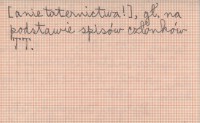 [a nie taternictwa!], gł. na
podstawie spisów członków
TT.